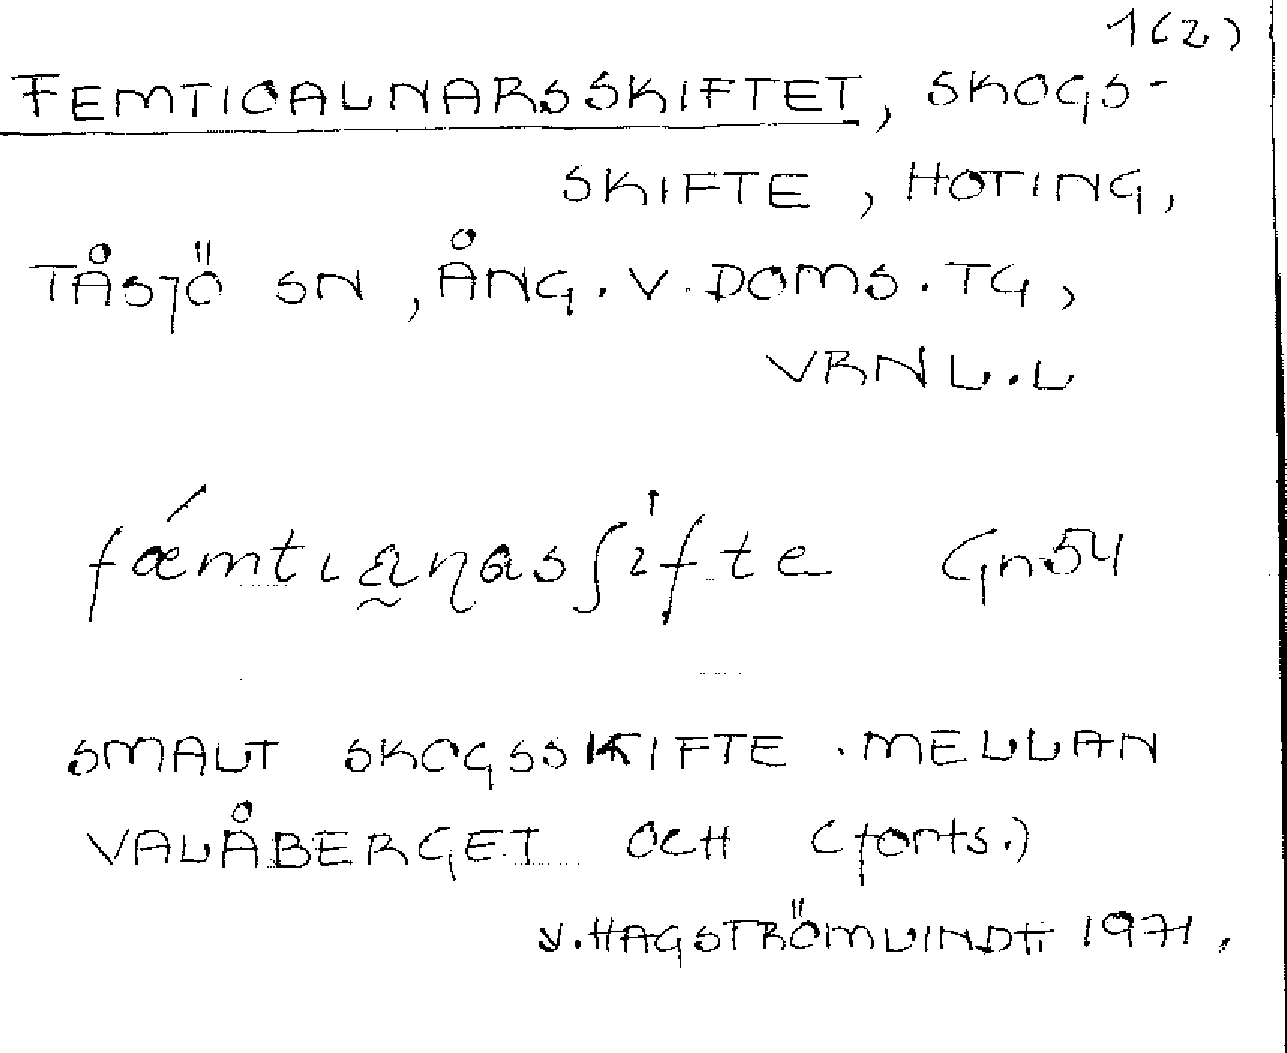 1(2)
FEMTIOALNARSSKIFTET, SKOGS-
SKIFTE, HOTING,
TÅSJÖ SN, ÅNG. V. DOMS. TG,
VRNL.L
Gn54
SMALT SKOGSSKIFTE. MELLAN
VALÅBERGET OCH (forts.)
V. HAGSTRÖMLINDH 1971.